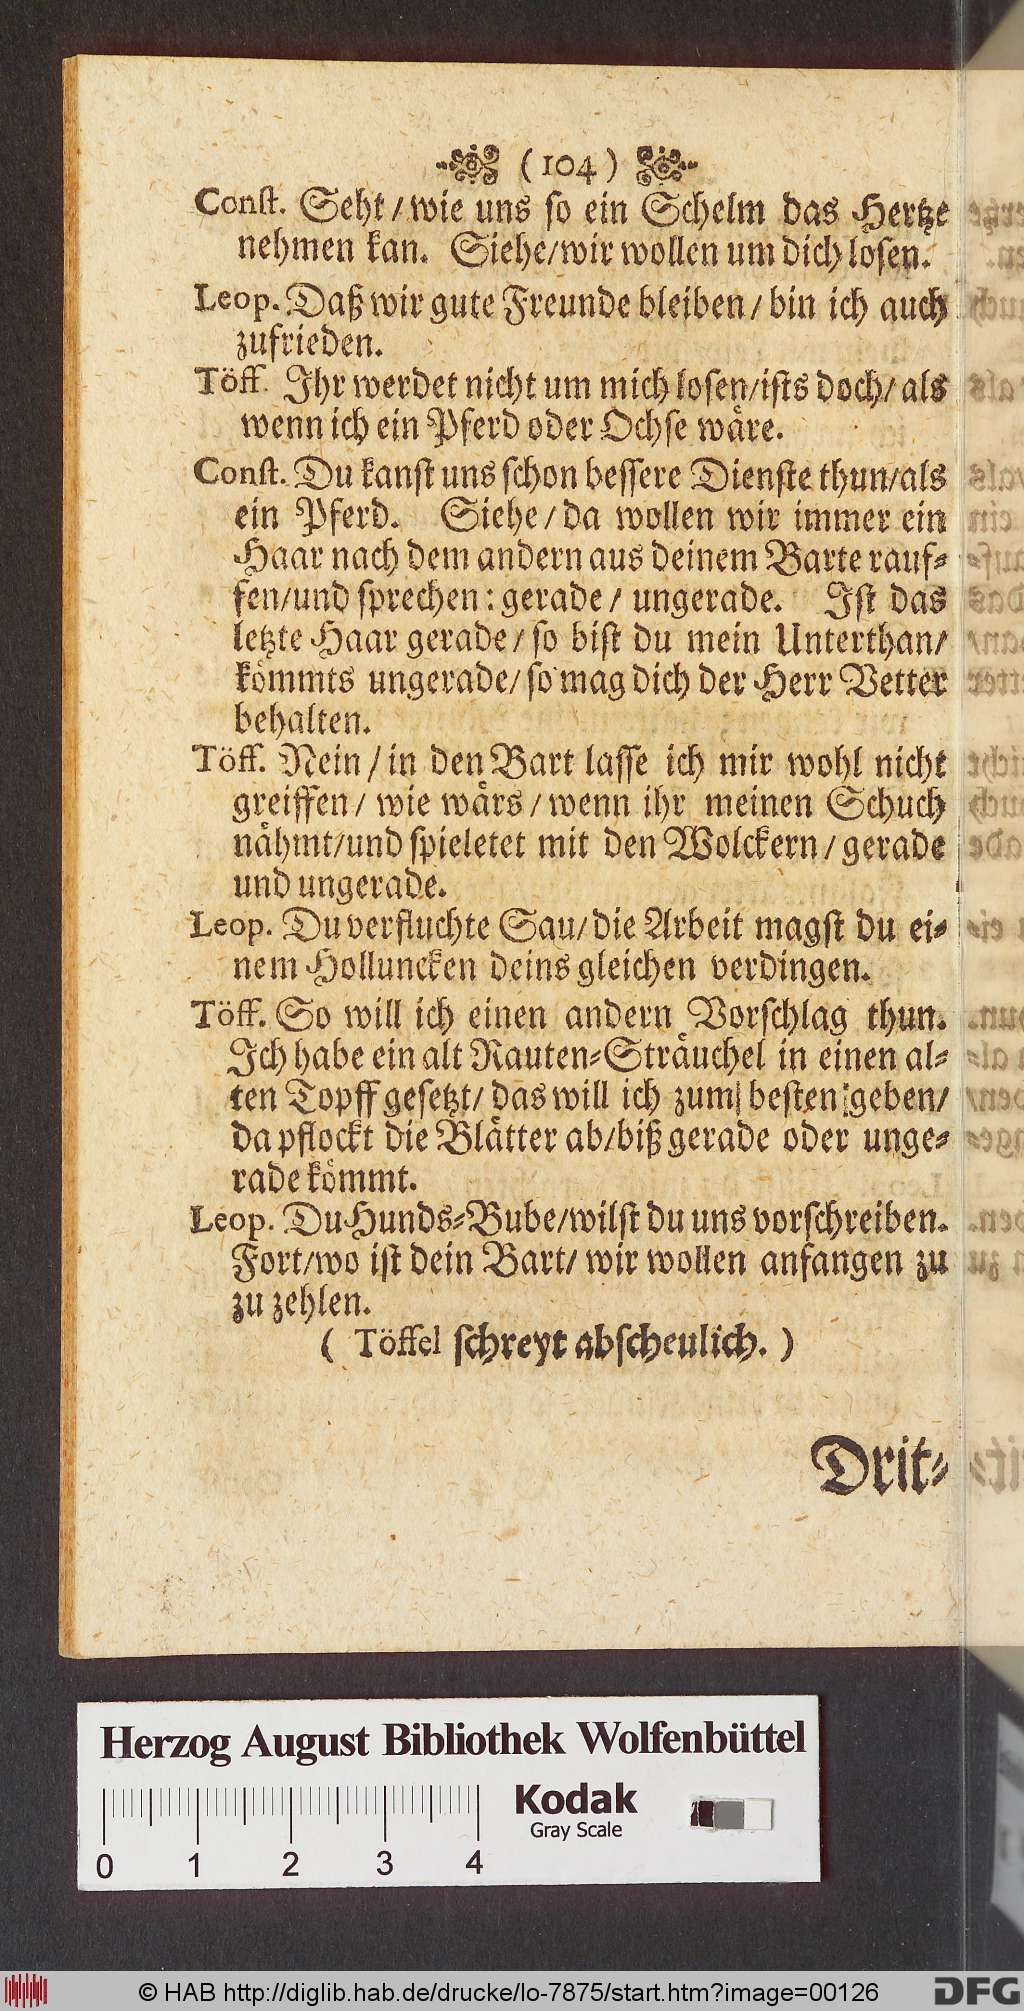 (104)
Const. Seht / wie uns so ein Schelm das Hertze
nehmen kan. Siehe/wir wollen um dich losen.
Leop. Daß wir gute Freunde bleiben / bin ich auch
zufrieden.
Töff. Ihr werdet nicht um mich losen/ists doch/ als
wenn ich ein Pferd oder Ochse wäre.
Const. Du kanst uns schon bessere Dienste thun/als
ein Pferd. Siehe / da wollen wir immer ein
Haar nach dem andern aus deinem Barte rauf-
fen/und sprechen: gerade / ungerade. Ist das
letzte Haar gerade / so bist du mein Unterthan/
kömmts ungerade/ so mag dich der Herr Vetter
behalten.
Töff. Nein / in den Bart lasse ich mir wohl nicht
greiffen / wie wärs / wenn ihr meinen Schuch
nähmt/und spieletet mit den Wolckern / gerade
und ungerade.
Leop. Du verfluchte Sau/ die Arbeit magst du ei-
nem Holluncken deins gleichen verdingen.
Töff. So will ich einen andern Vorschlag thun.
Ich habe ein alt Rauten-Sträuchel in einen al-
ten Topff gesetzt/ das will ich zum besten geben/
da pflockt die Blätter ab/biß gerade oder unge-
rade kömmt.
Leop. Du Hunds-Bube/wilst du uns vorschreiben.
Fort/wo ist dein Bart/ wir wollen anfangen zu
zu zehlen.
( Töffel schreyt abscheulich. )
Drit-
Herzog August Bibliothek Wolfenbüttel
Kodak
Gray Scale
0 1 2 3 4
© HAB http://diglib.hab.de/drucke/lo-7875/start.htm?image=00126
DFG